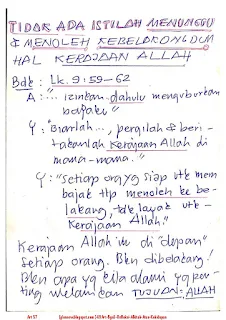 TIDAK ADA ISTILAH MENUNGGU
& MENOLEH KEBELAKONG DLM
HAL KERAJAAN ALLAH
Bdk: Lk. 9:59-62
A: "... izinkan dahulu menguburkan
bapaku"
Y: "Biarlah..., pergilah & beri-
takanlah Kerajaan Allah di
mana-mana."
Y: "Setiap org yg siap utk mem
bajak ttp menoleh ke be-
lakang, tdk layak utk
Kerajaan Allah."
Kerajaan Allah itu di "depan"
setiap orang. Bkn dibelakang!
Bkn apa yg kita alami yg pen-
ting melainkan TUJUAN: ALLAH